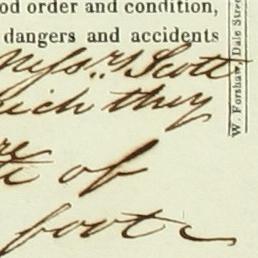 od order and condition,
dangers and accidents
Messrs Scott
ich they
re
of
foot
W. Forshaw, Dale Stre